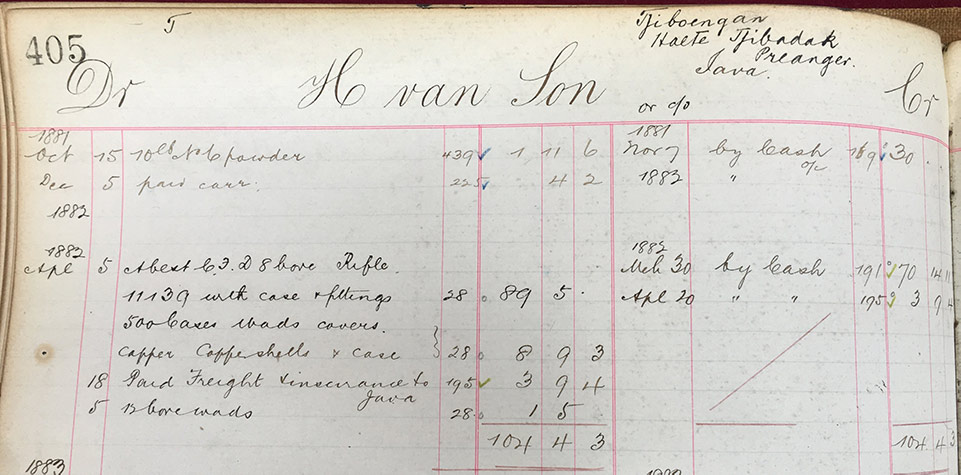 405
T
Tjiboengan
Halte Tjibadak
Preanger.
Java.
Dr H van Son or c/o Cr
1881 1881
Oct 15 10lb No 6 powder 439 1 11 6 Nov 7 by Cash o/c 30 . .
Dec 5 paid carr: 225 4 2 1882 "
1882
1882 1882
Apl 5 A best C.F. D 8 bore Rifle. Mch 30 by Cash 191 70 14 11
11139 with case & fittings 28 89 5 . Apl 20 " " 195 3 9 4
500 Cases Wads covers.
Copper shells & case 28 8 9 3
18 Paid Freight & insurance to Java 195 3 9 4
5 12 bore wads 28 1 5
104 4 3 104 4 3
1883